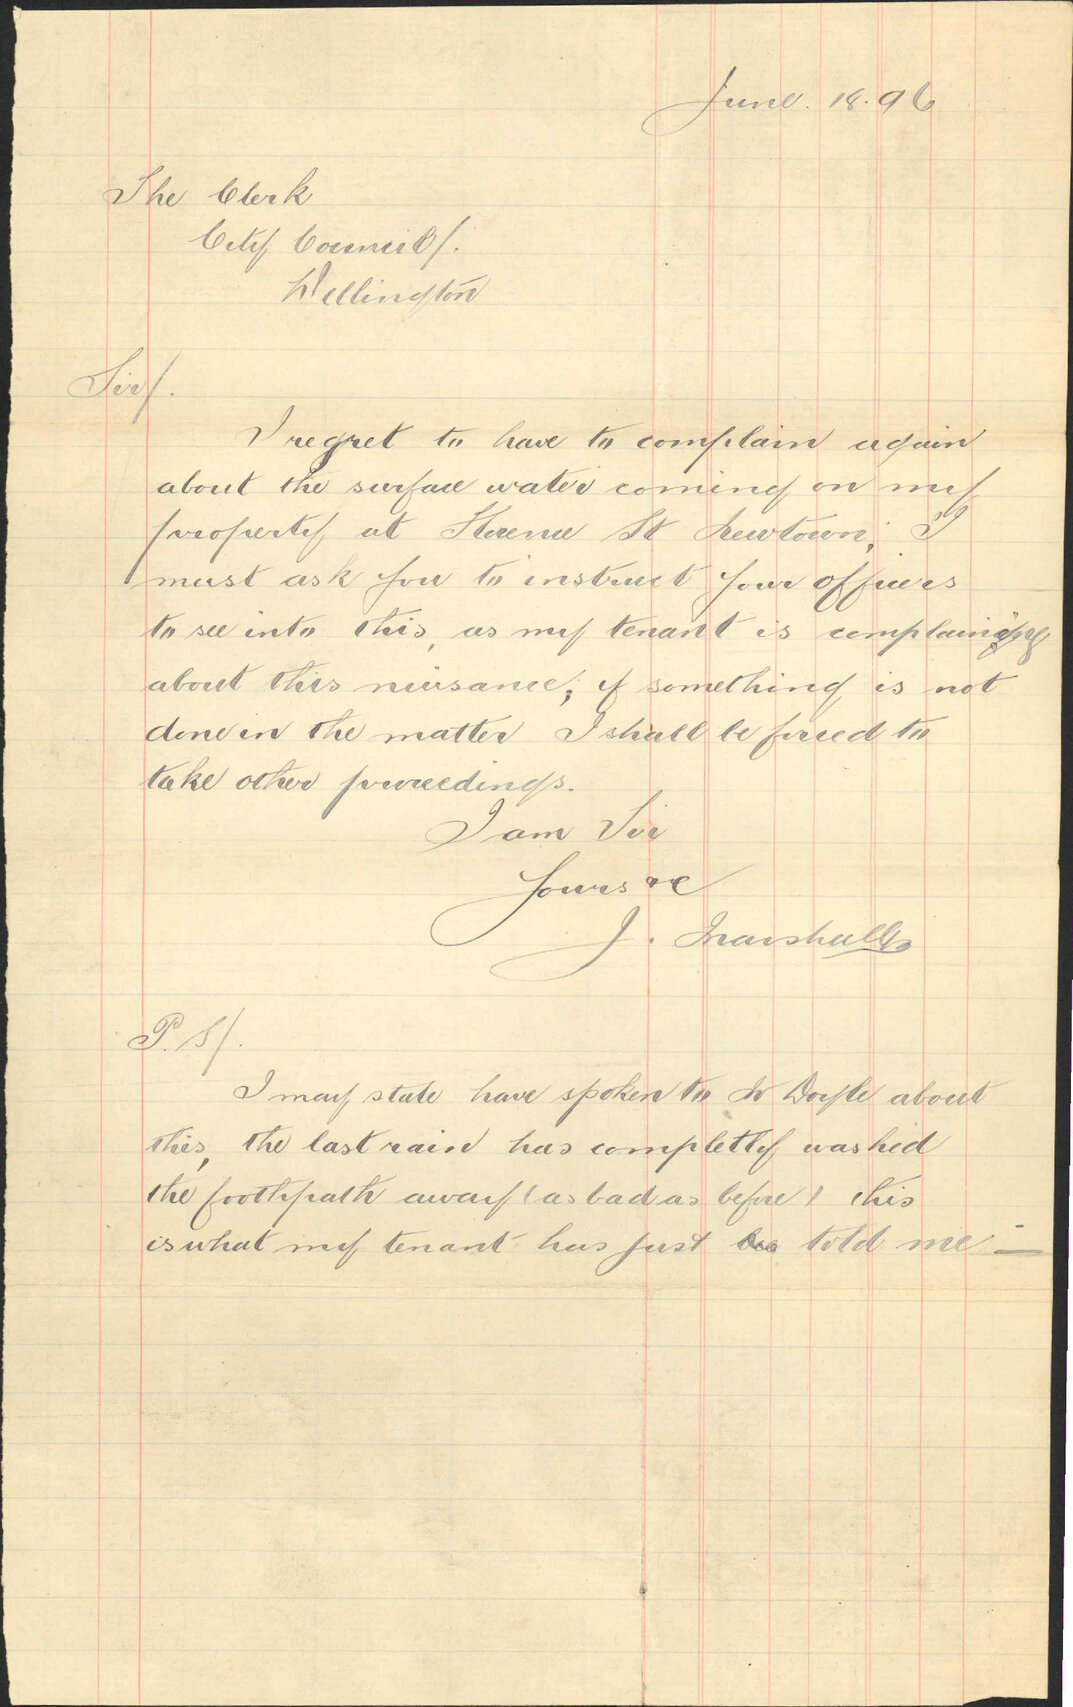 June. 18. 96
The Clerk
City Council/.
Wellington
Sir/.
I regret to have to complain again
about the surface water coming on my
property at Florence St Newtown; I
must ask you to instruct your officers
to see into this, as my tenant is complaining
about this nuisance; if something is not
done in the matter I shall be forced to
take other proceedings.
I am Sir
Yours &c
J. Marshall
P.S/.
I may state have spoken to Doyle about
this, the last rain has completly washed
the foothpath away (as bad as before) this
is what my tenant has just told me —